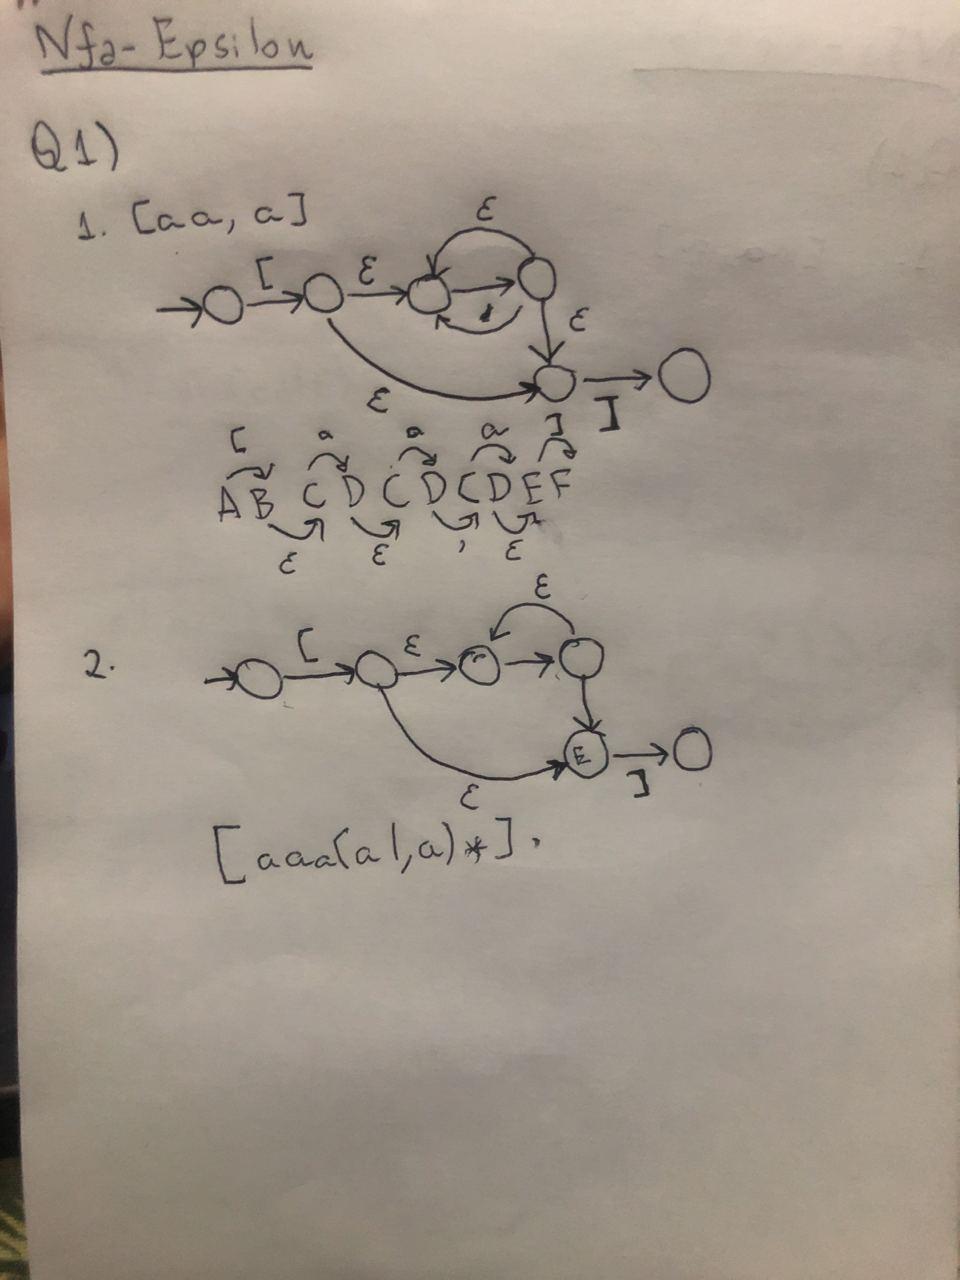 Nfa-Epsilon
Q1)
1. [aa, a]
ε
[ ε
,
ε
ε ]
[ a a a ]
A B C D C D C D E F
ε ε , ε
2.
ε
[ ε
E
ε ]
[aaa(a|,a)*].